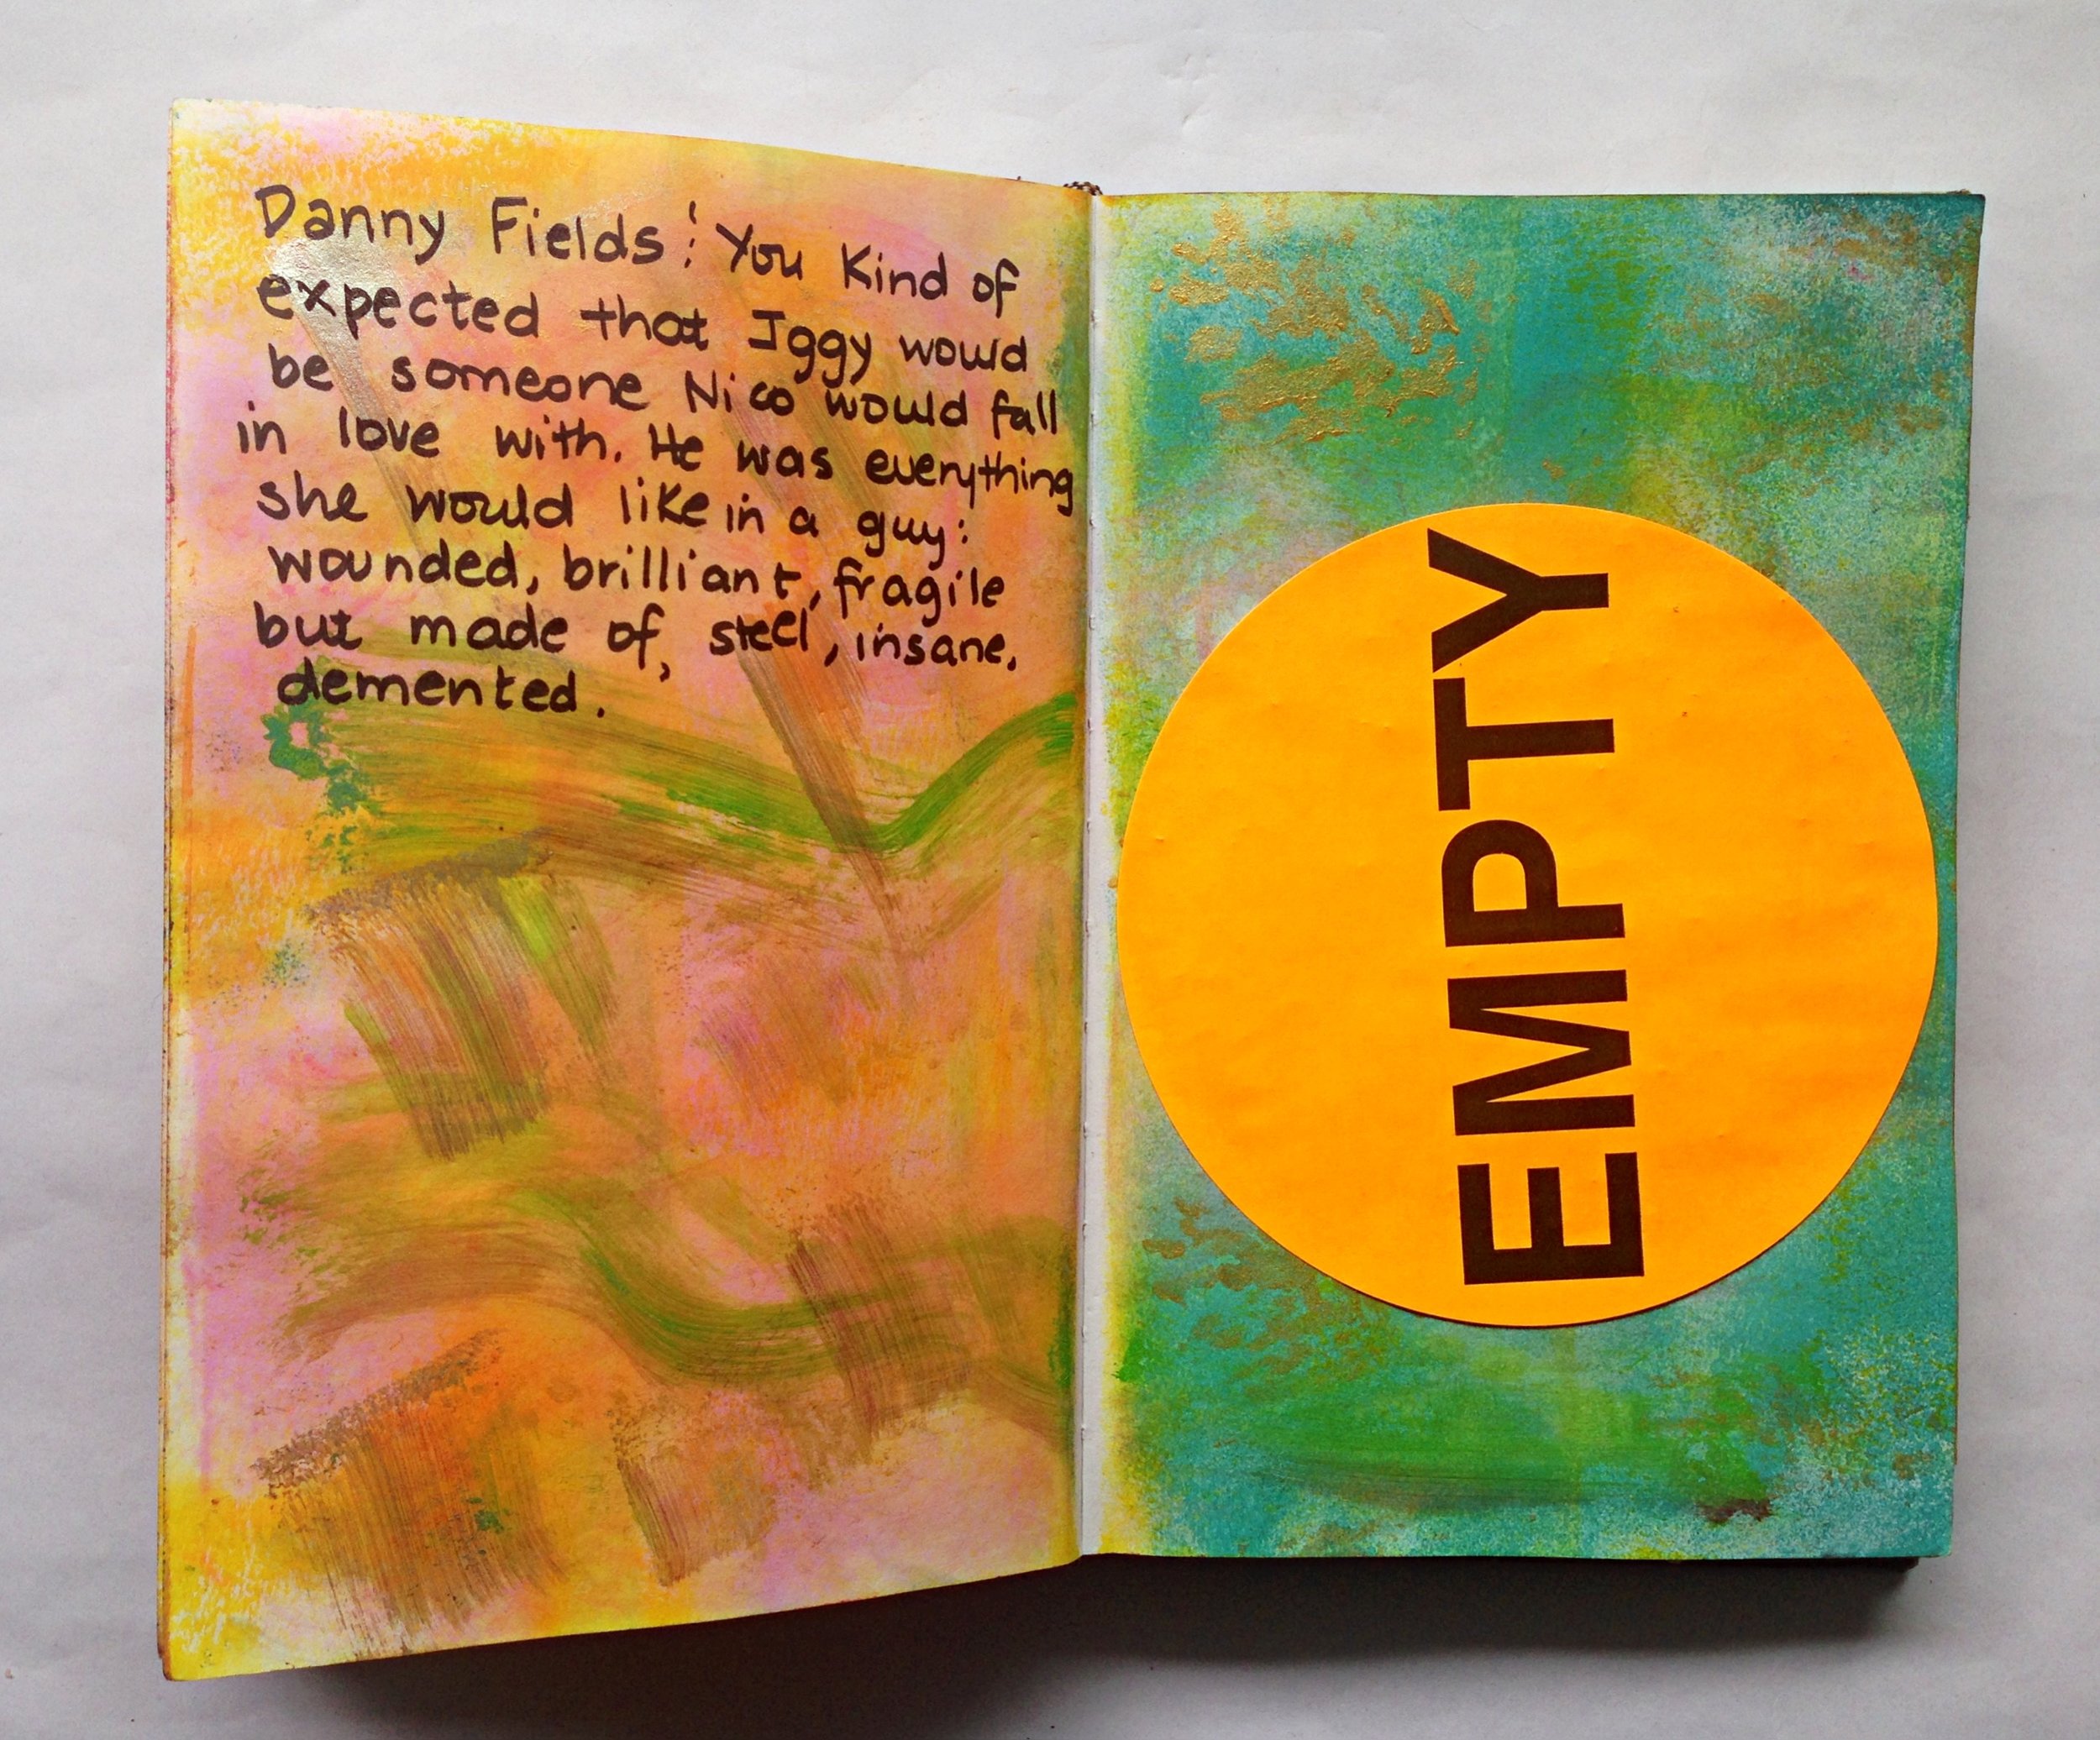 Danny Fields: You Kind of
expected that Iggy would
be someone Nico would fall
in love with. He was everything
she would like in a guy:
wounded, brilliant, fragile
but made of, steel, insane,
demented.
EMPTY